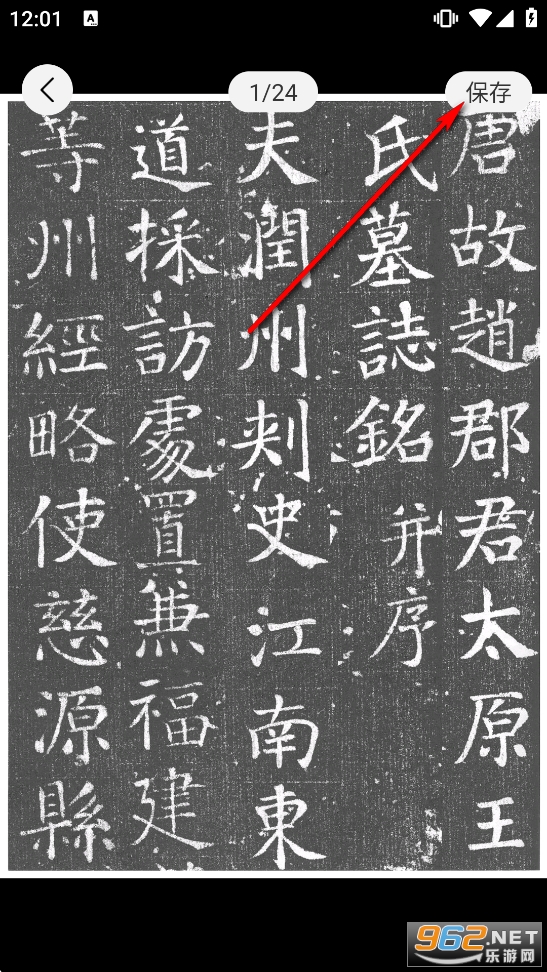 12:01
A
1/24
保存
唐故趙郡君太原王
氏墓誌銘并序
夫潤州刾史江南東
道採訪處置兼福建
等州經略使慈源縣
962.NET
乐游网